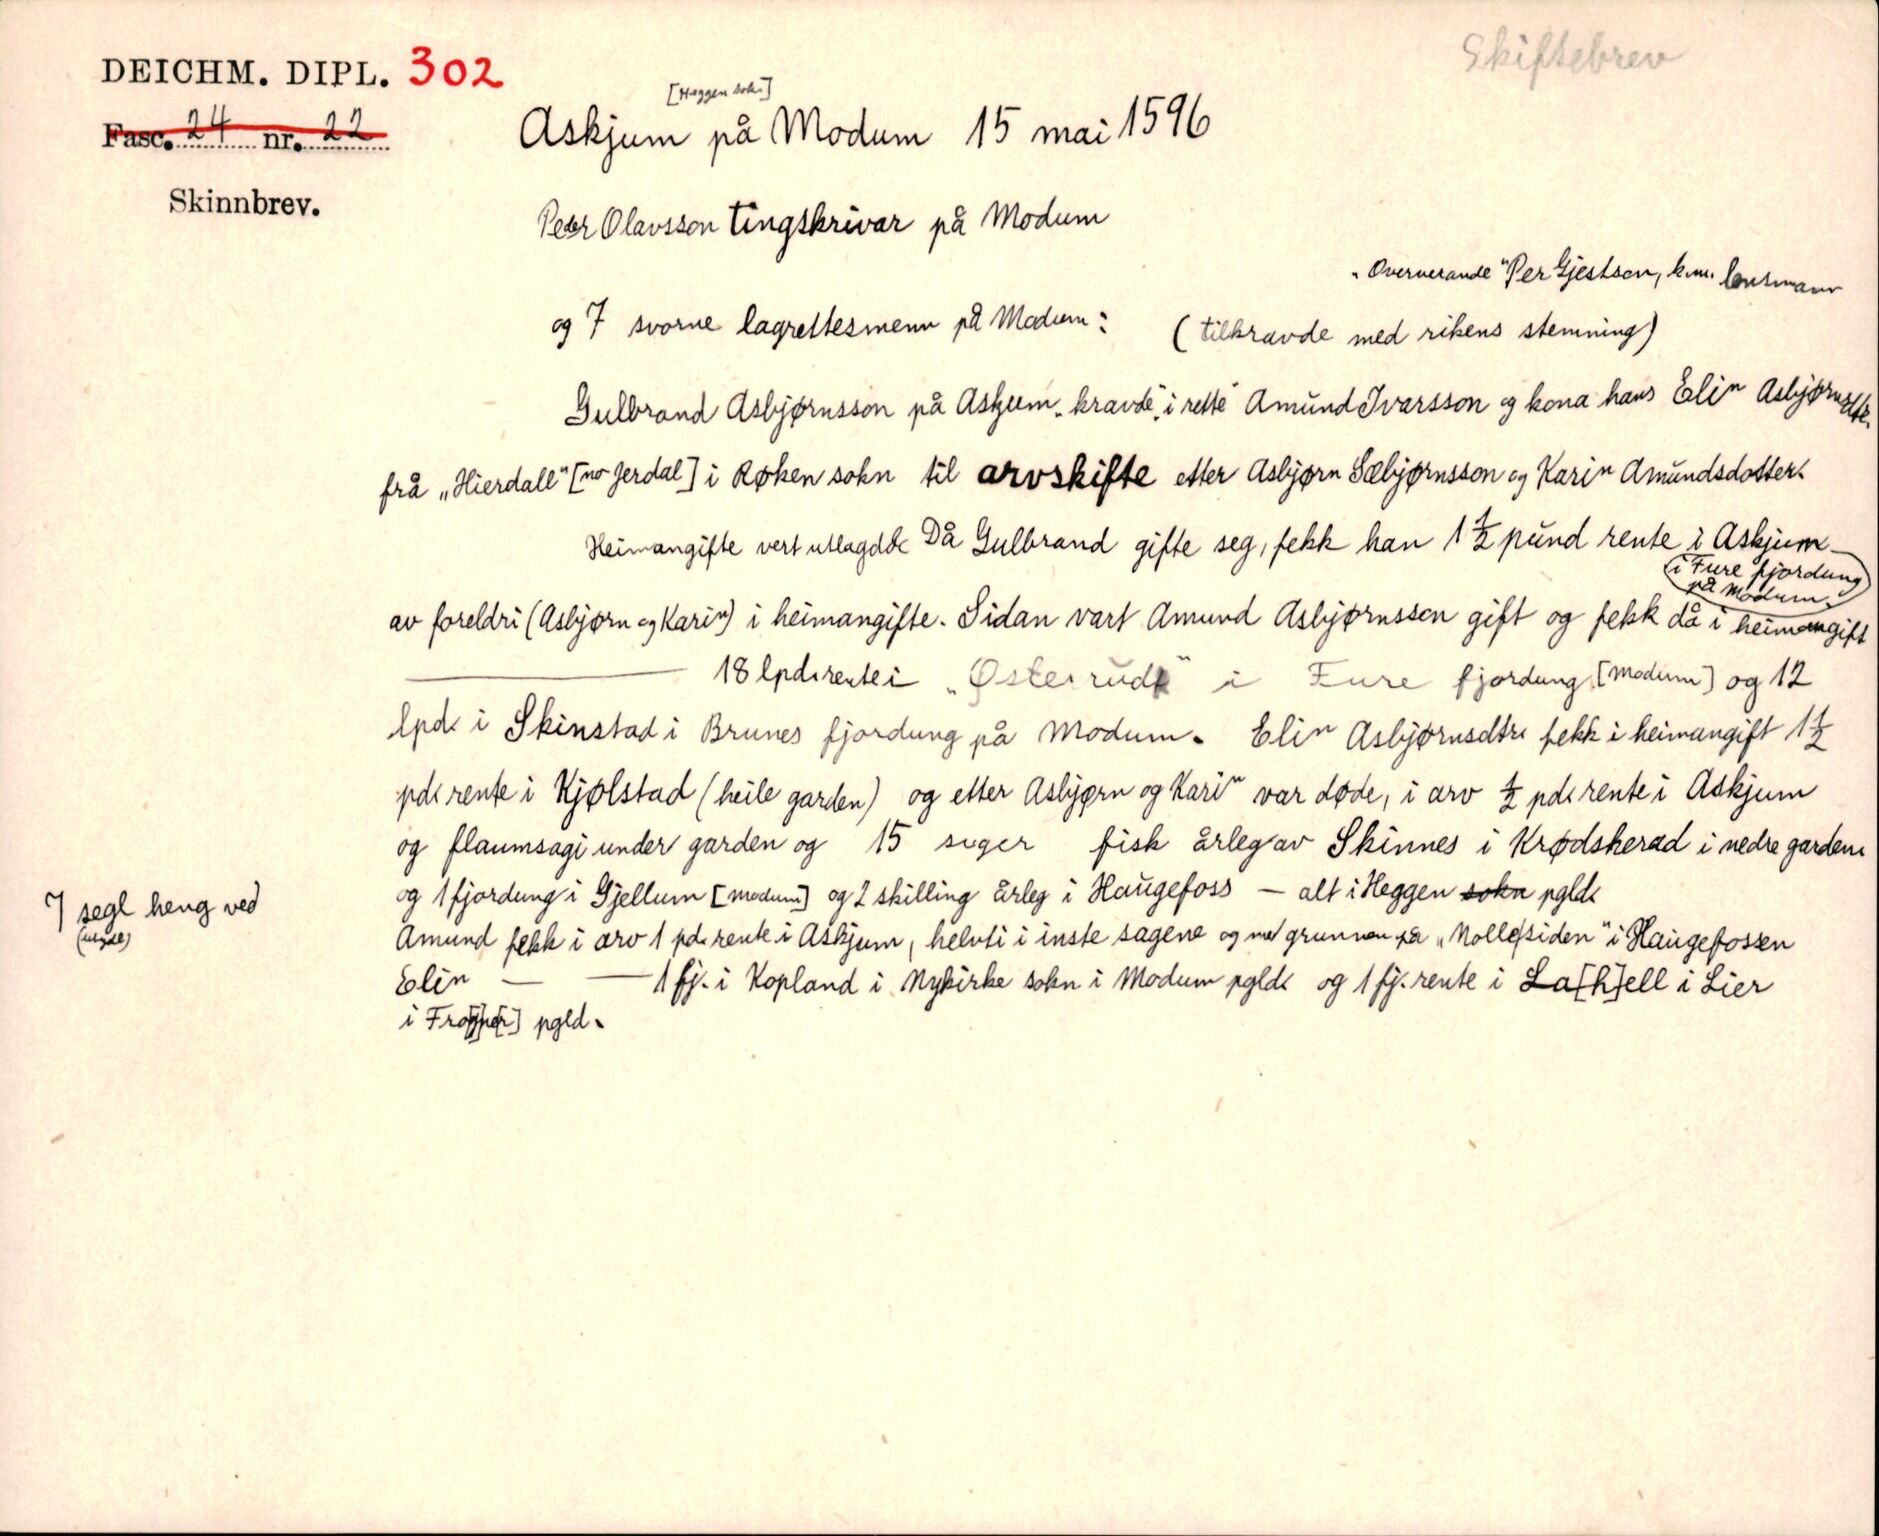 Skiftebrev
DEICHM. DIPL. 302
Fasc. 24 nr. 22
Skinnbrev.
[Heggen sokn]
Askjum på Modum 15 mai 1596
Peder Olavsson tingskrivar på Modum
"Oververande" Per Gjestson, k.m. lensmann
og 7 svorne lagrettesmenn på Modum: (tilkravde med rikens stemning)
Gulbrand Asbjørnsson på Askjum "kravde i rette" Amund Ivarsson og kona hans Elin Asbjørnsdtr.
frå „Hierdall" [no Jerdal] i Røken sokn til arvskifte etter Asbjørn Sæbjørnsson og Karin Amundsdotter.
Heimangifte vert utlagd: Då Gulbrand gifte seg, fekk han 1 1/2 pund rente i Askjum
i Fure fjordung
på Modum.
av foreldri (Asbjørn og Karin) i heimangifte. Sidan vart Amund Asbjørnsson gift og fekk då i heimangift
— 18 lpd. rente i „Østerrud" i Fure fjordung [Modum] og 12
lpd. i Skinstad i Brunes fjordung på Modum. Elin Asbjørnsdtr. fekk i heimangift 1 1/2
pd. rente i Kjølstad (heile garden) og etter Asbjørn og Karin var døde, i arv 1/2 pd. rente i Askjum
og flaumsagi under garden og 15 fisk årleg av Skinnes i Krødsherad i nedre garden
og 1 fjordung i Gjellum [Modum] og 2 skilling årleg i Haugefoss — alt i Heggen sokn pgld.
7 segl heng ved
Amund fekk i arv 1 pd. rente i Askjum, helvti i inste sagene og med grunnen på „Mollesiden" i Haugefossen
Elin — — 1 fj. i Kopland i Nykirke sokn i Modum pgld. og 1 fj. rente i La[h]ell i Lier
i Fro[gner] pgld.